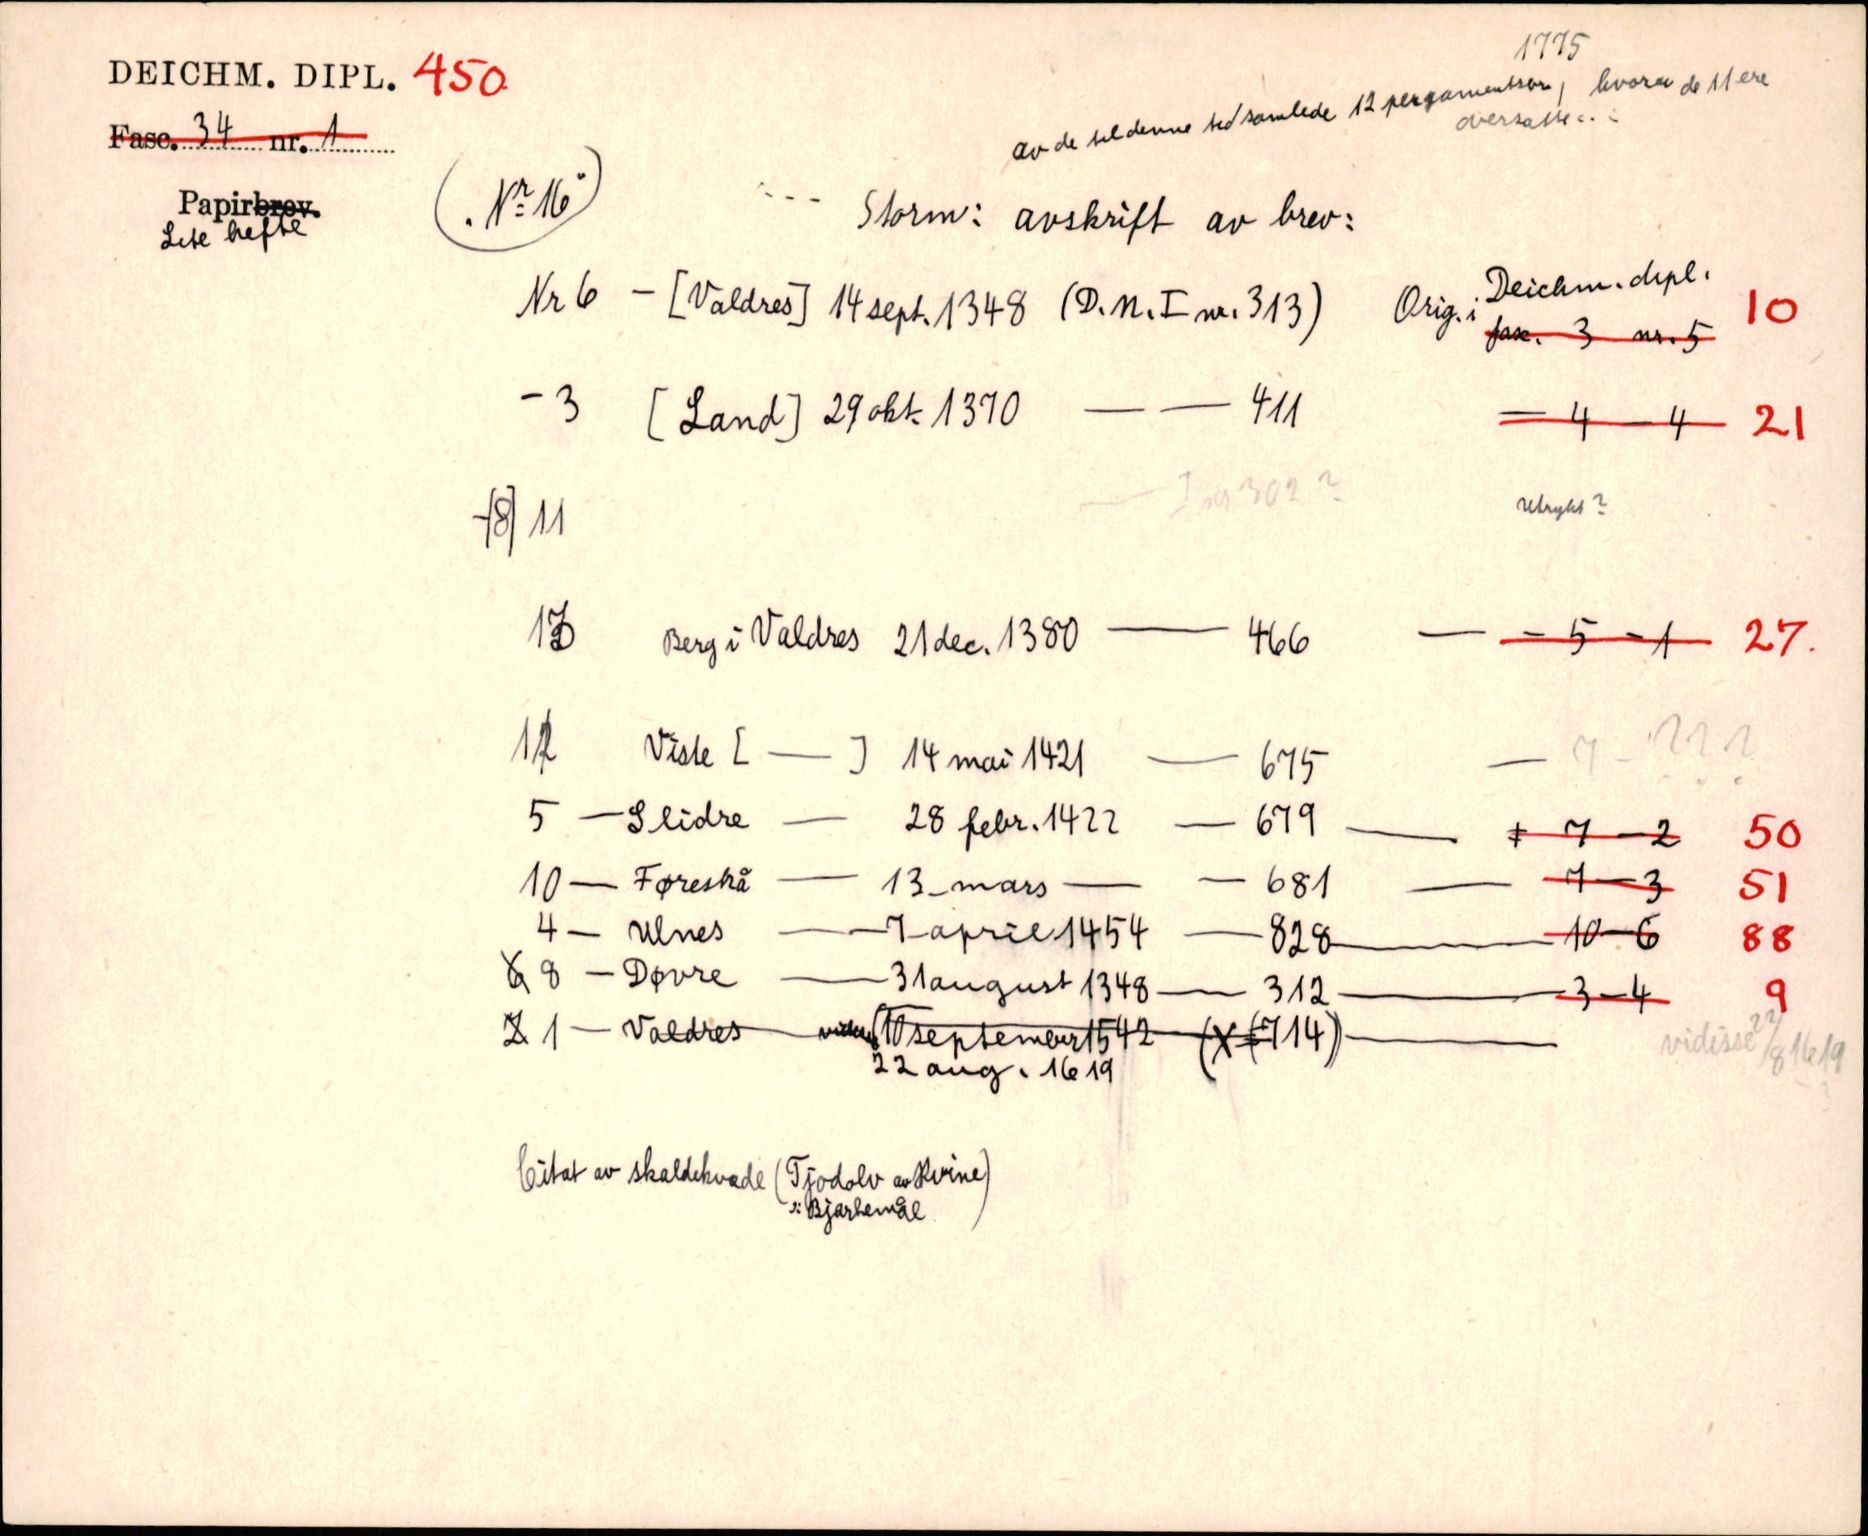 1775
DEICHM. DIPL. 450
av de til denne tid samlede 12 pergamentsbr, hvorav de 11 ere
oversatte...
Fasc. 34 nr. 1
Papirbrev.
Lite hefte
(Nr. 16)
--- Storm: avskrift av brev:
Nr 6 — [Valdres] 14 sept. 1348 (D.N. I nr. 313) Orig. i Deichm. dipl. 10
fasc. 3 nr. 5
- 3 [Land] 29 okt. 1370 — — 411 — 4 — 4 21
I nr 302?
Utrykt?
[8] 11
Berg i Valdres 21 dec. 1380 — 466 — - 5 - 1 27.
12 Viste [ — ] 14 mai 1421 — 675 — 7 - ???
5 — Slidre — 28 febr. 1422 — 679 — 7 — 2 50
10 — Føreskå — 13 mars — — 681 — 7 — 3 51
4 — Ulnes — 7 april 1454 — 828 — 10 — 6 88
8 — Dovre — 31 august 1348 — 312 — 3 — 4 9
1 — Valdres — 10 september 1542 (X 714) — vidisse 22/8 1619
22 aug. 1619
Citat av skaldekvade (Tjodolv av Kvine)
: Bjarkemål